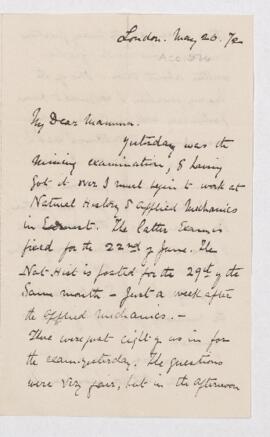 London. May 26. /72
My Dear Mamma.
Yesterday was the
Mining examination, & having
Got it over I must begin to work at
Natural History & Applied Mechanics
in Earnest. The latter Exam is
fixed for the 22nd of June. The
Nat-Hist is posted for the 29th of the
Same month - Just a week after
the Applied Mechanics. -
There were just eight of us in for
the exam-yesterday. The questions
were very fair, but in the afternoon